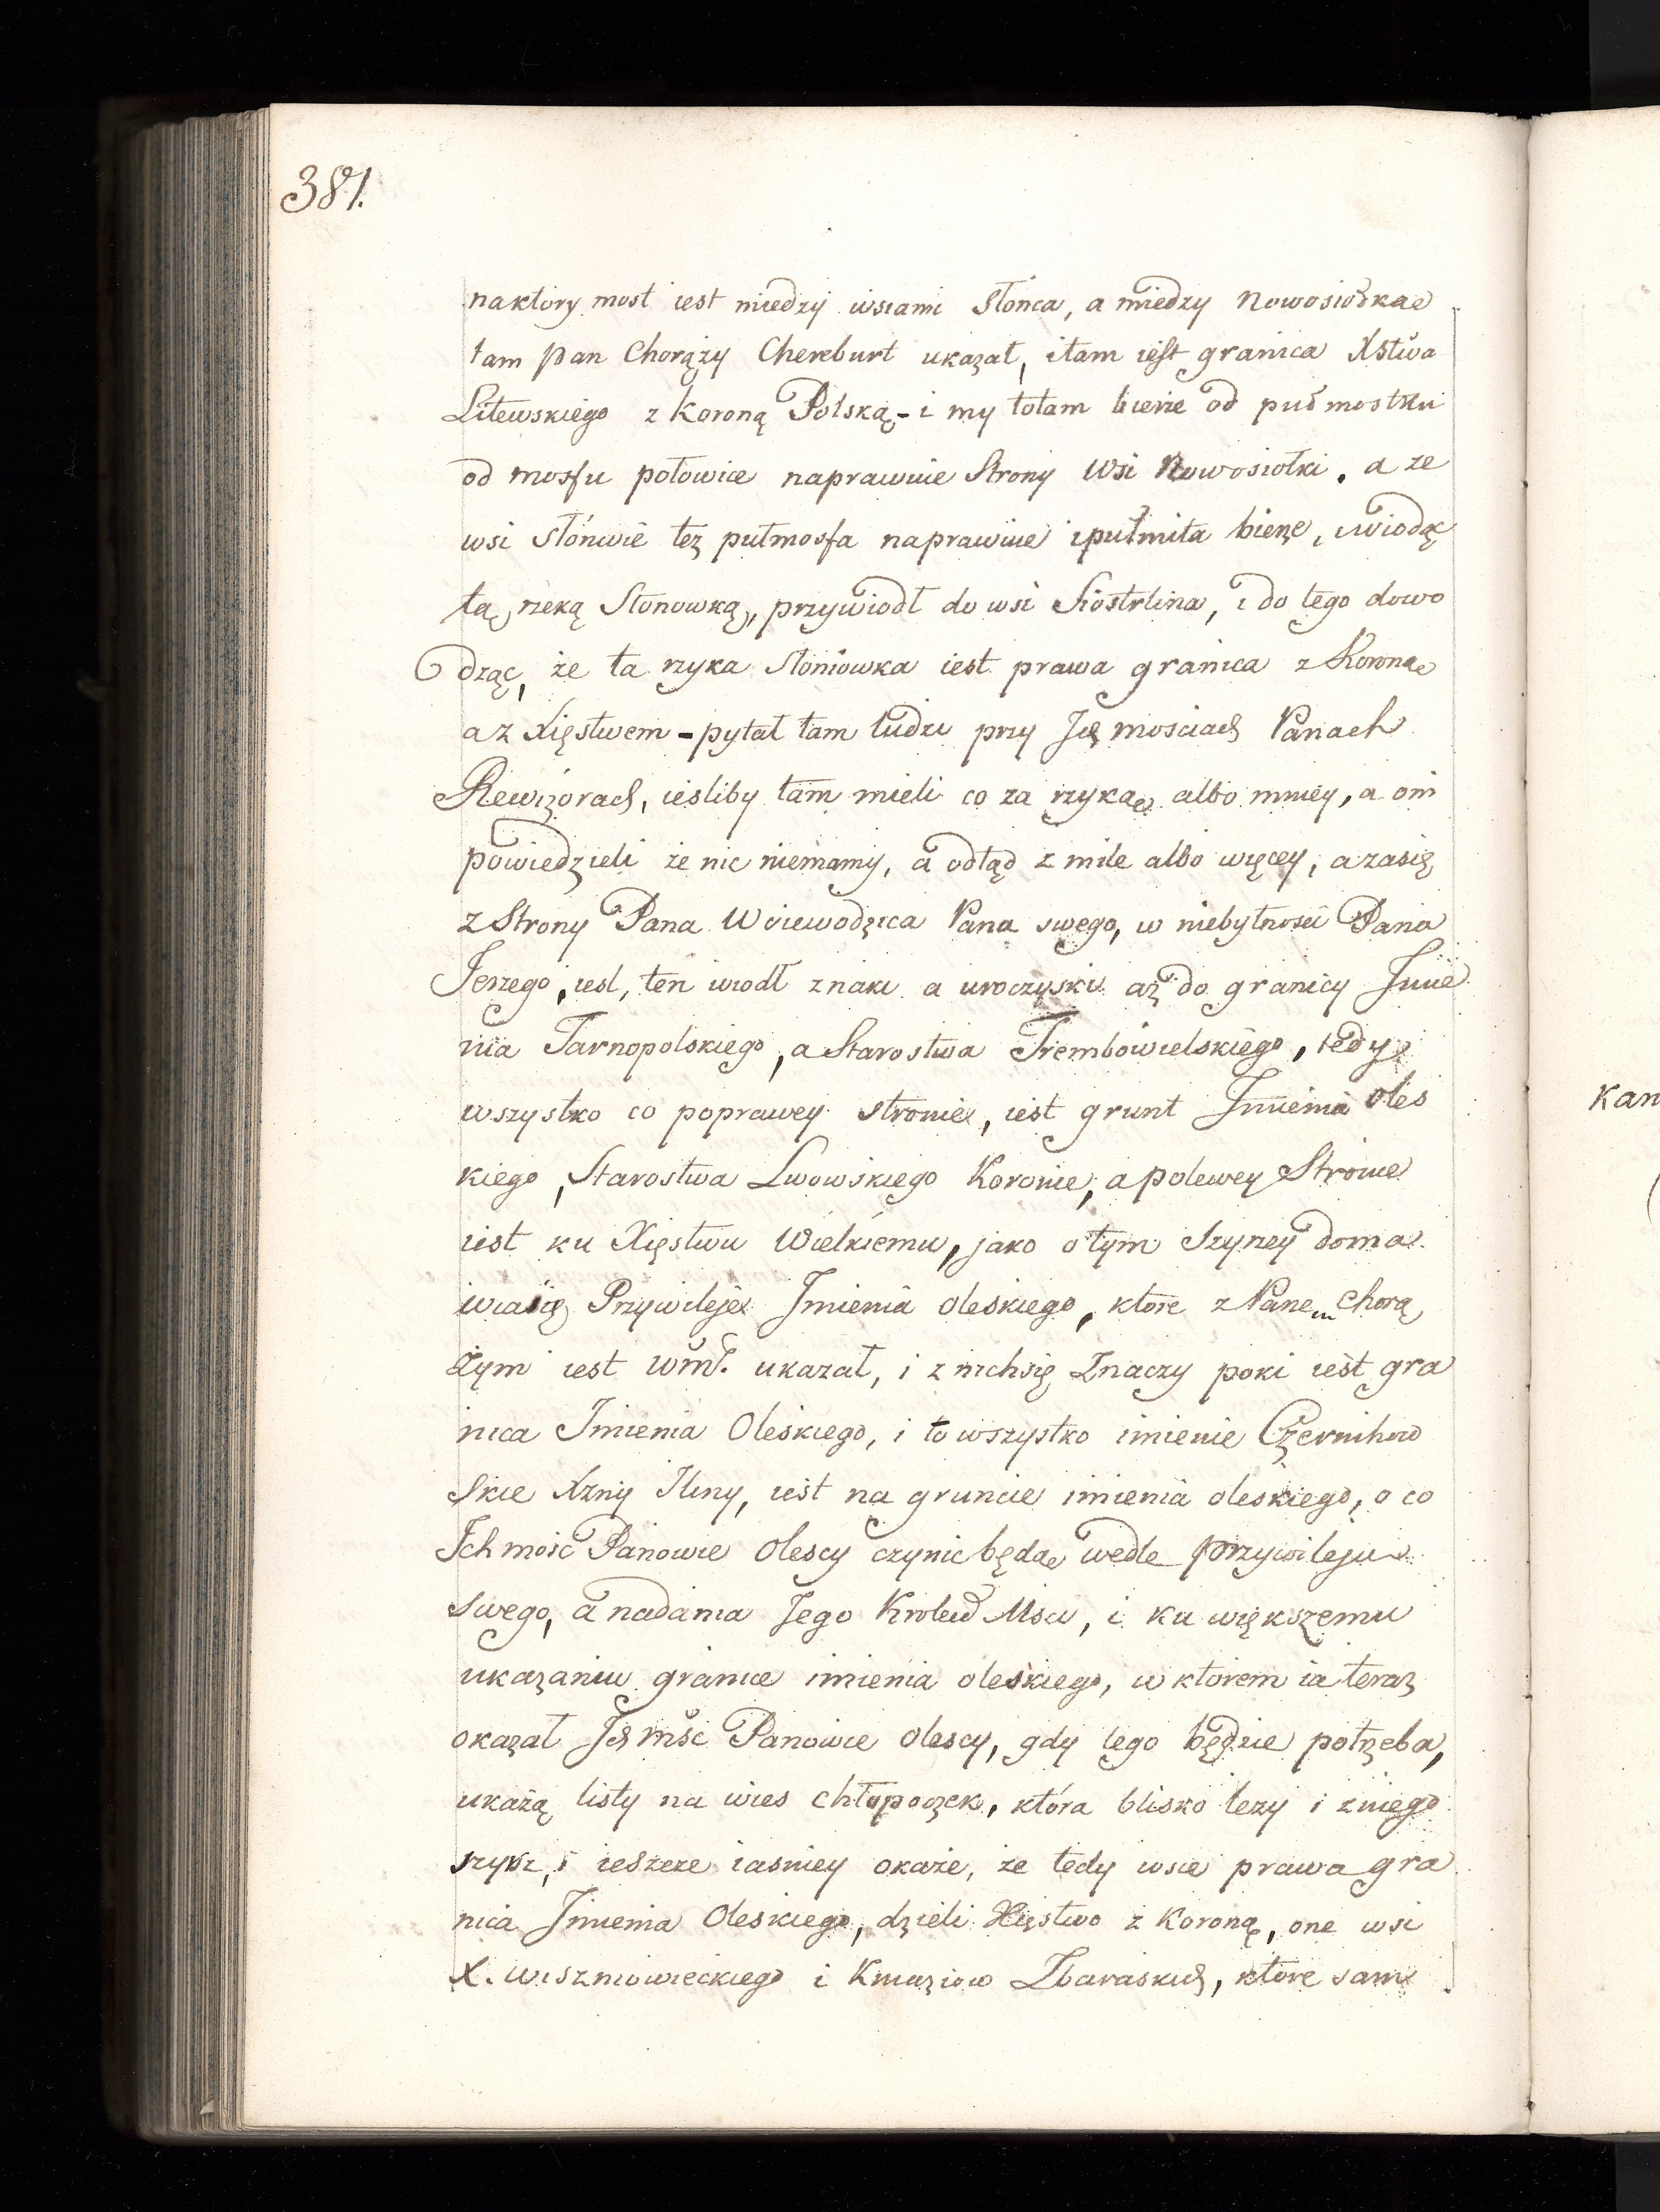 381.
naktóry most iest miedzy wsiami Słonca, a miedzy Nowosiołką
tam pan Chorąży Chereburt ukazał, itam iest granica Xstwa
Litewskiego z Koroną Polską - i my totam bierze od puł mostku
od mostu połowice naprawnie Strony Wsi Nowosiołki. a ze
wsi Słónwie tez pułmosta naprawiue i pułmila bierze, wiodąc
tą rzeką Słonowką, przywiodł do wsi Siostrlina, i do tego dowo
dząc, że ta rzyka Słoniowka iest prawa granica z Koroną
a z Xięstwem - pytał tam ludzi przy Jch mosciach Panach
Rewizorach, iesliby tam mieli co za rzyką albo mniey, a oni
powiedzieli że nic niemamy, a odtąd z mile albo więcey, a zasię
z Strony Pana Woiewodzica Pana swego, w niebytnosci Pana
Jerzego, iest, ten wiodł znaki a uroczyski aż do granicy Jmie
nia Tarnopolskiego, a Starostwa Trembowielskiego, tedy
wszystko co poprawey stronie, iest grunt Jmienia Oles
kiego, Starostwa Lwowskiego Koronie, a polewey Stronie
iest ku Xięstwu Wielkiemu, jako o tym Szyrzey doma
wiaią Przywileje Jmienia Oleskiego, ktore z Panem Chorą
żym iest Wmć. ukazał, i z nichsię Znaczy poki iest gra
nica Jmienia Oleskiego, i to wszystko imienie Czernihow
skie Xzny Jliny, iest na gruncie imienia oleskiego, o co
Jchmość Panowie Olescy czynić będą wedle przywileju
swego, a nadania Jego Krolew Mści, i ku większemu
ukazaniu granice imienia oleskiego, w ktorem ia teraz
okazał Jch mśc Panowie Olescy, gdy tego będzie potrzeba,
ukażą listy na wies Chłopoczek, która blisko leży i z niego
szyrz, i ieszcze iasniey okaże, że tedy wsie prawa gra
nica Jmienia Oleskiego, dzieli Xięstwo z Koroną, one wsi
X. Wiszniowieckiego i Kniaziow Zbaraskich, ktore sam
Kan